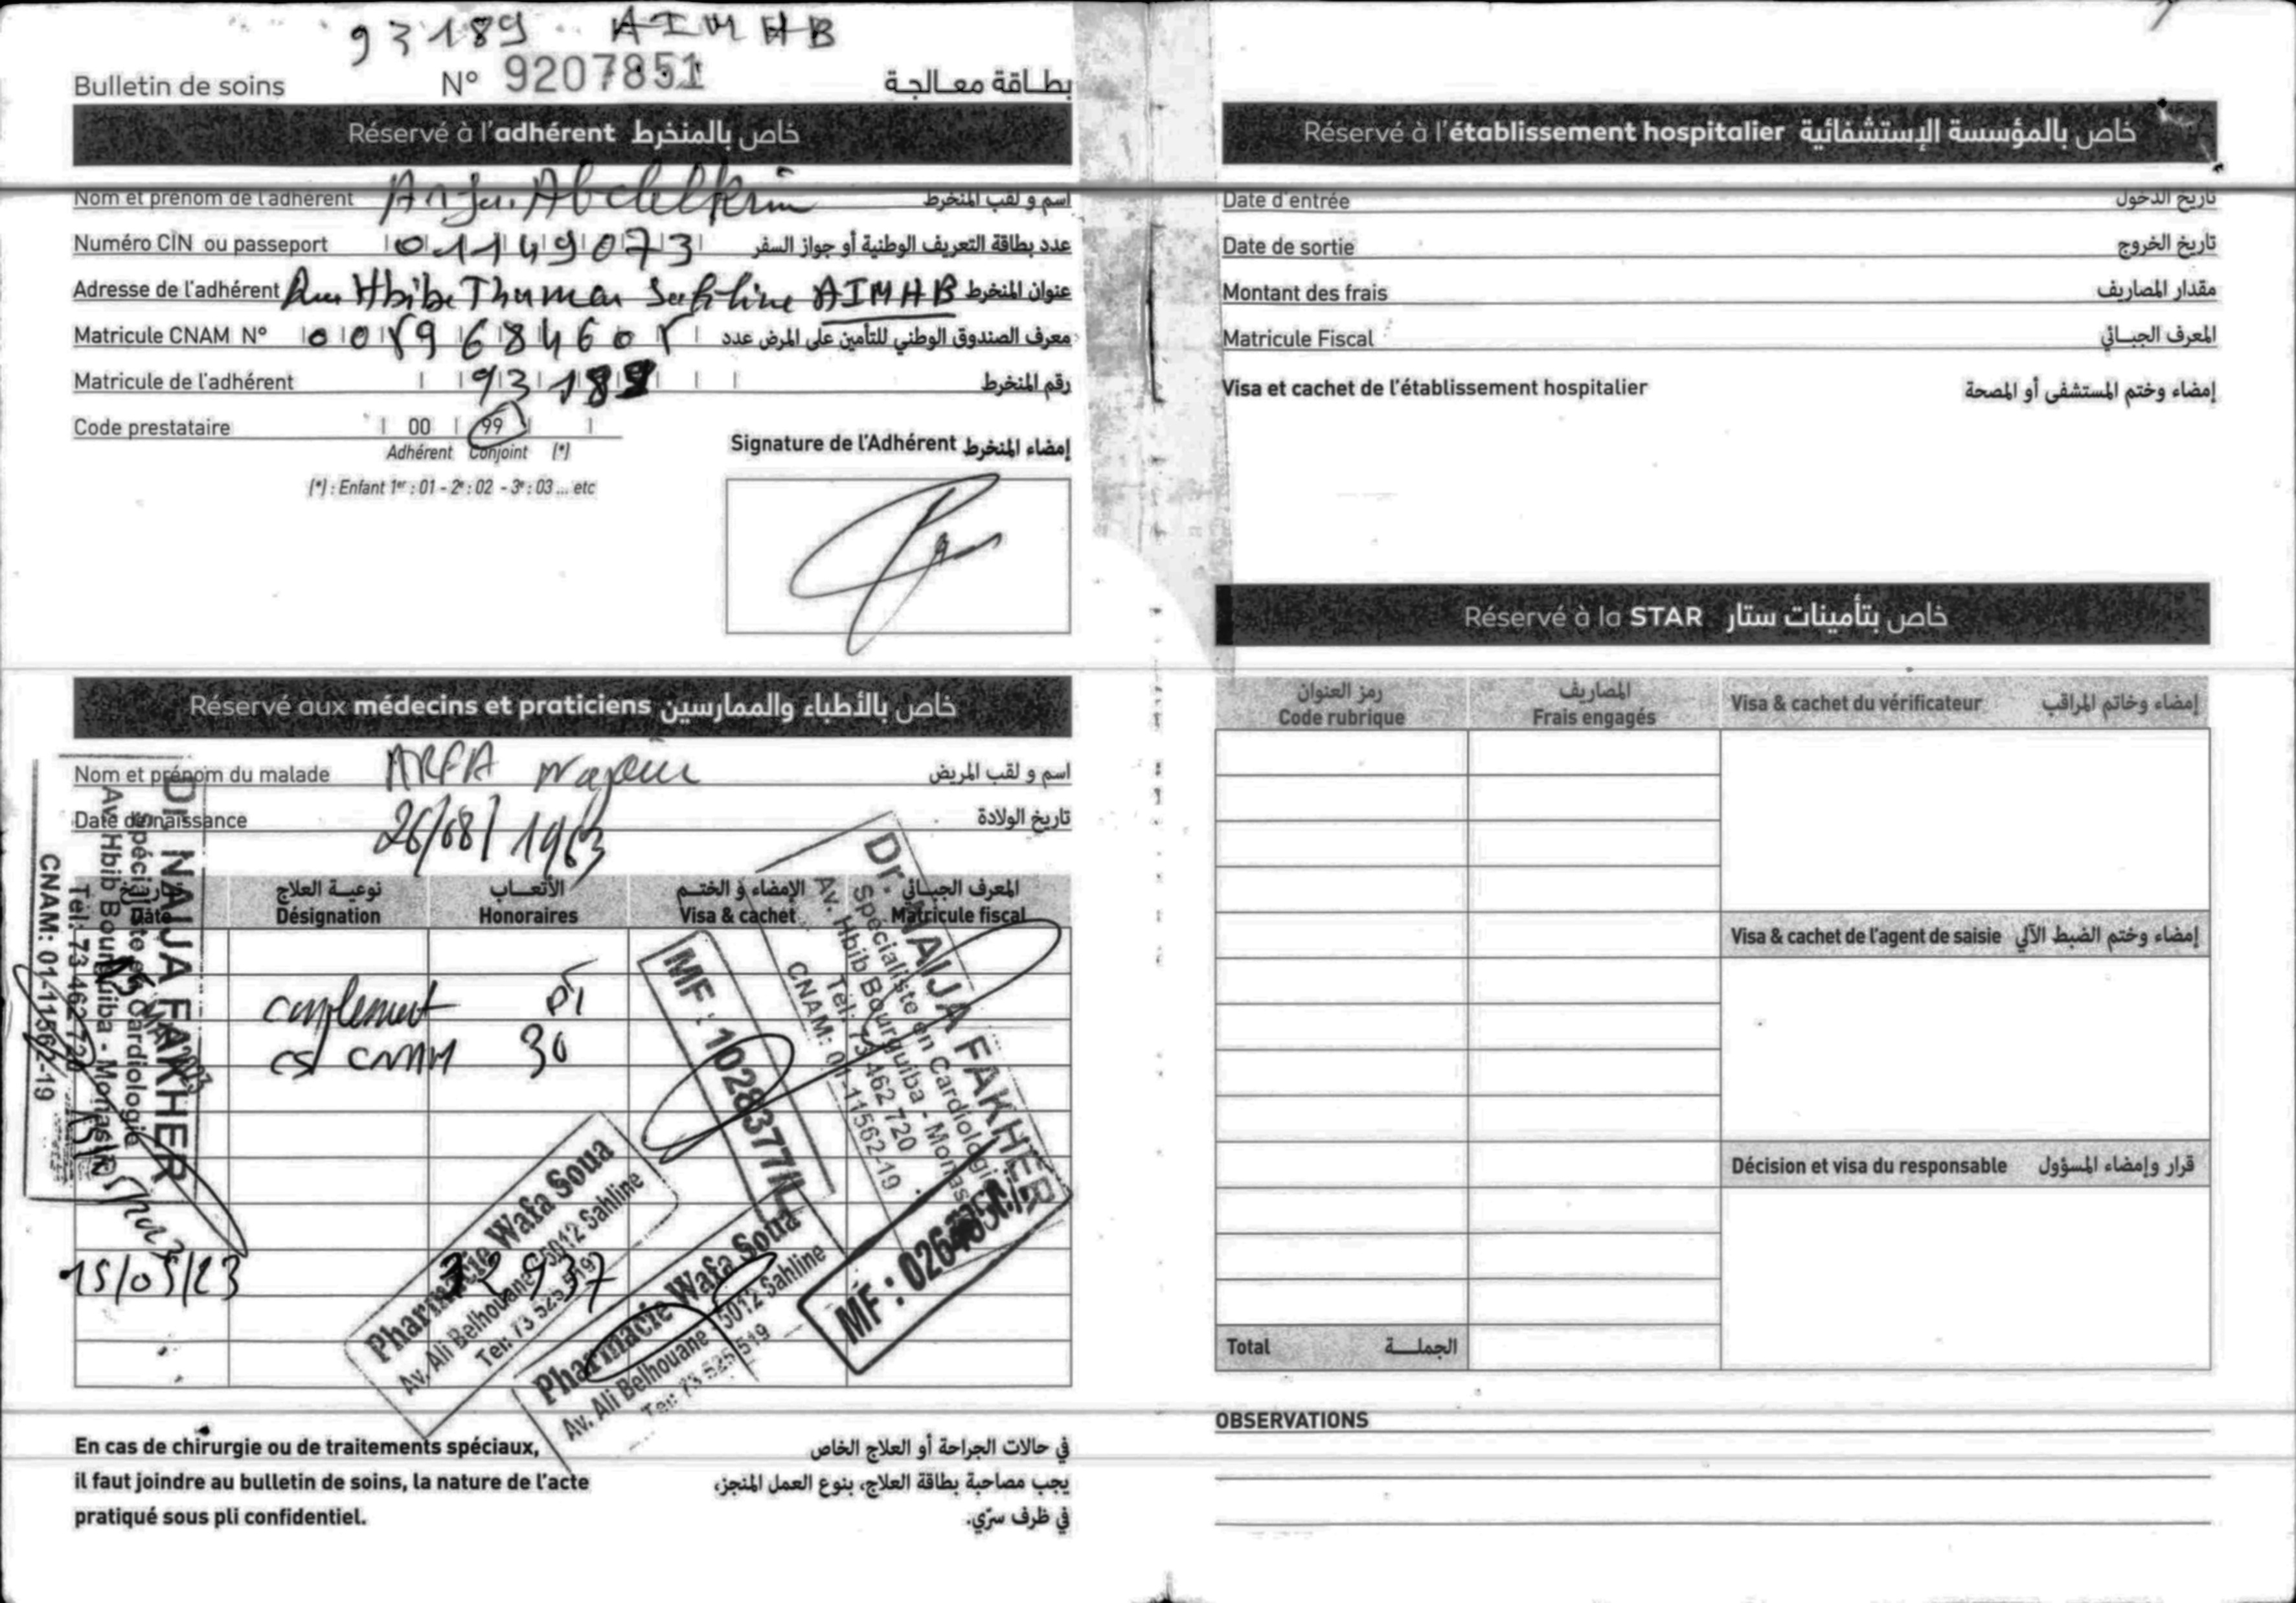 93189 AIMHB
Bulletin de soins N° 9207851 بطاقة معالجة
Réservé à l'adhérent خاص بالمنخرط
Nom et prénom de l'adhérent Abdelkrim اسم و لقب المنخرط
Numéro CIN ou passeport 01149073 عدد بطاقة التعريف الوطنية أو جواز السفر
Adresse de l'adhérent AIMHB عنوان المنخرط
Matricule CNAM N° معرف الصندوق الوطني للتأمين على المرض عدد
Matricule de l'adhérent 93189 رقم المنخرط
Code prestataire 00 99
Adhérent Conjoint (*)
(*) : Enfant 1er : 01 - 2e : 02 - 3e : 03 ... etc
Signature de l'Adhérent إمضاء المنخرط
Réservé aux médecins et praticiens خاص بالأطباء والممارسين
Nom et prénom du malade ARFA اسم و لقب المريض
Date de naissance 26/08/1963 تاريخ الولادة
تاريخ نوعية العلاج الأتعاب الإمضاء و الختم المعرف الجبائي
Date Désignation Honoraires Visa & cachet Matricule fiscal
complement
CNAM 30
15/05/23
Dr. NAIJA FAKHER
Spécialiste en Cardiologie
Av. Hbib Bourguiba - Monastir
Tél: 73 462 720
CNAM: 01-11562-19
Dr. NAIJA FAKHER
Spécialiste en Cardiologie
Av. Hbib Bourguiba - Monastir
Tél: 73 462 720
CNAM: 01-11562-19
MF : 1028377/L
Pharmacie Wafa Soua
Av. Ali Belhouane - 5012 Sahline
Tel: 73 525 519
Pharmacie Wafa Soua
Av. Ali Belhouane - 5012 Sahline
Tel: 73 525 519
MF :
En cas de chirurgie ou de traitements spéciaux,
il faut joindre au bulletin de soins, la nature de l'acte
pratiqué sous pli confidentiel.
في حالات الجراحة أو العلاج الخاص
يجب مصاحبة بطاقة العلاج، بنوع العمل المنجز،
في ظرف سرّي.
Réservé à l'établissement hospitalier خاص بالمؤسسة الإستشفائية
Date d'entrée تاريخ الدخول
Date de sortie تاريخ الخروج
Montant des frais مقدار المصاريف
Matricule Fiscal المعرف الجبائي
Visa et cachet de l'établissement hospitalier إمضاء وختم المستشفى أو المصحة
Réservé à la STAR خاص بتأمينات ستار
رمز العنوان المصاريف
Code rubrique Frais engagés Visa & cachet du vérificateur إمضاء وخاتم المراقب
Visa & cachet de l'agent de saisie إمضاء وختم الضبط الآلي
Décision et visa du responsable قرار وإمضاء المسؤول
Total الجملة
OBSERVATIONS